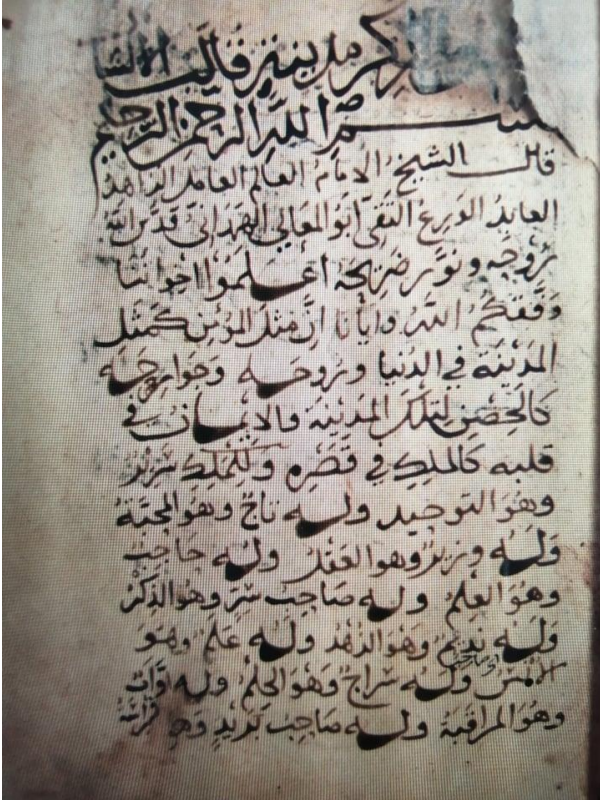 ذكر مدينة قالب الانسان
بسم الله الرحمن الرحيم
قال الشيخ الامام العالم العامل الزاهد
العابد الورع التقى ابو المعالي الهمداني قدس الله
روحه ونور ضريحه اعلموا اخواننا
وفقكم الله وايانا ان مثل المؤمن كمثل
المدينة في الدنيا وروحه وجوارحه
كالحصن لتلك المدينة والايمان في
قلبه كالملك في قصره وللملك سرير
وهو التوحيد وله تاج وهو المحبة
وله وزير وهو العقل وله حاجب
وهو العلم وله صاحب سر وهو الذكر
وله نديم وهو الزهد وله علم وهو
وله سراج وهو الحلم وله
وهو المراقبة وله صاحب بريد وهو